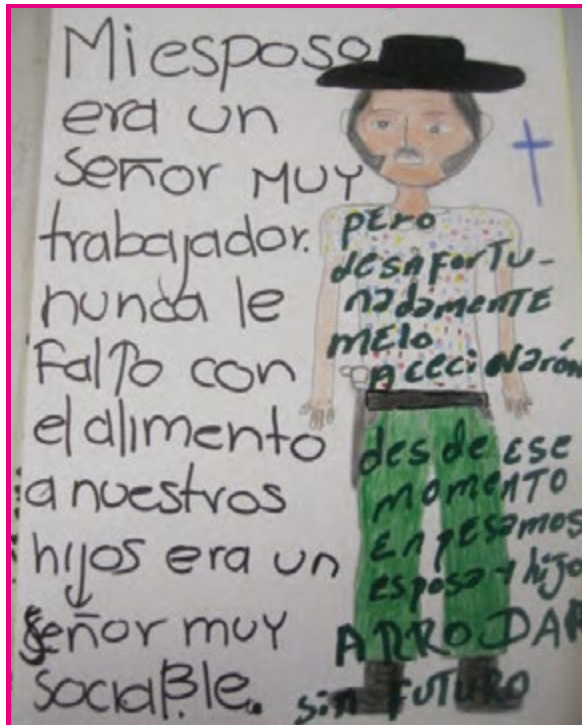 Mi esposo
era un
señor MUY
trabajador.
nunca le
Falto con
el alimento
a nuestros
hijos era un
señor muy
sociaBle.
pero
desafortu-
nadamente
melo
acecinarón
desde ese
momento
enpesamos
esposa y hijo
ARRODAR
sin FUTURO